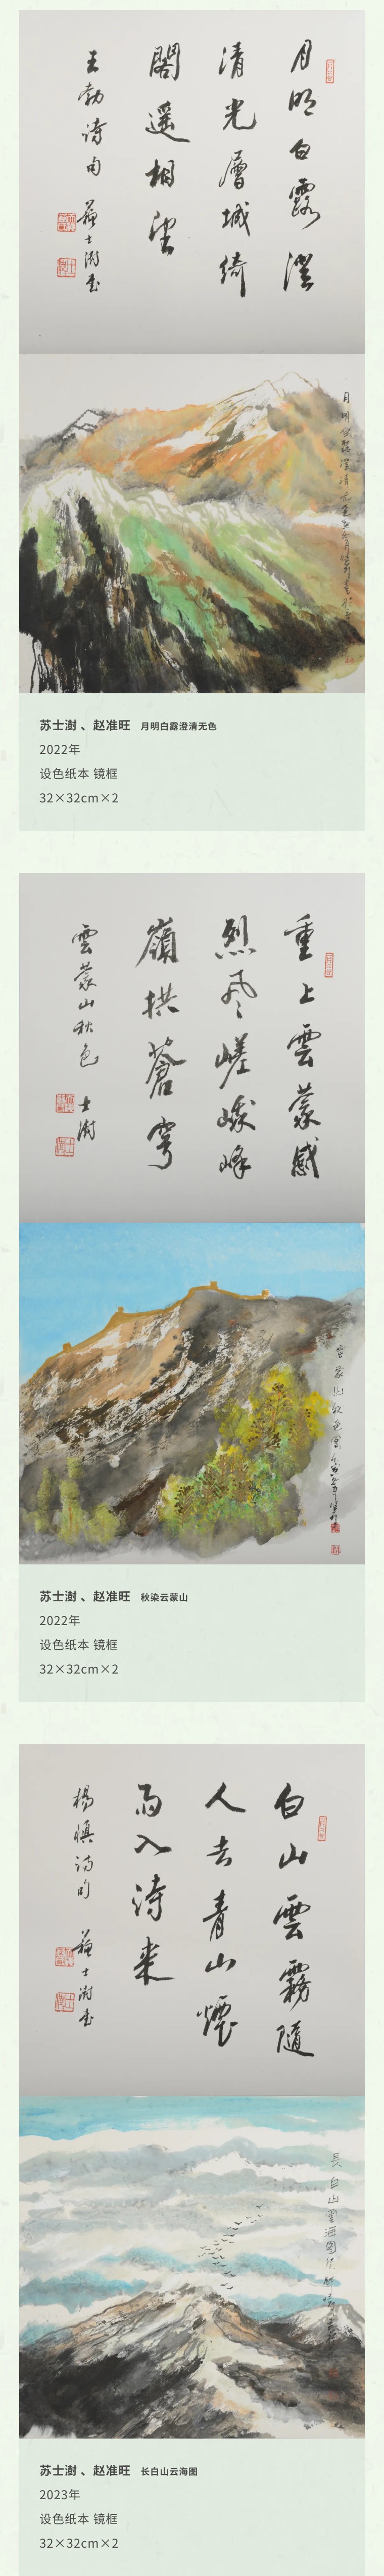 月明白露澄
清光層城綺
閣遥相望
王勃诗句 蘇士澍書
苏士澍、赵准旺 月明白露澄清无色
2022年
设色纸本 镜框
32×32cm×2
重上雲蒙感
烈风嵯峨峰
嶺拱蒼穹
雲蒙山秋色 士澍
苏士澍、赵准旺 秋染云蒙山
2022年
设色纸本 镜框
32×32cm×2
白山雲霧隨
人去青山煙
雨入诗来
楊慎诗句 蘇士澍書
苏士澍、赵准旺 长白山云海图
2023年
设色纸本 镜框
32×32cm×2